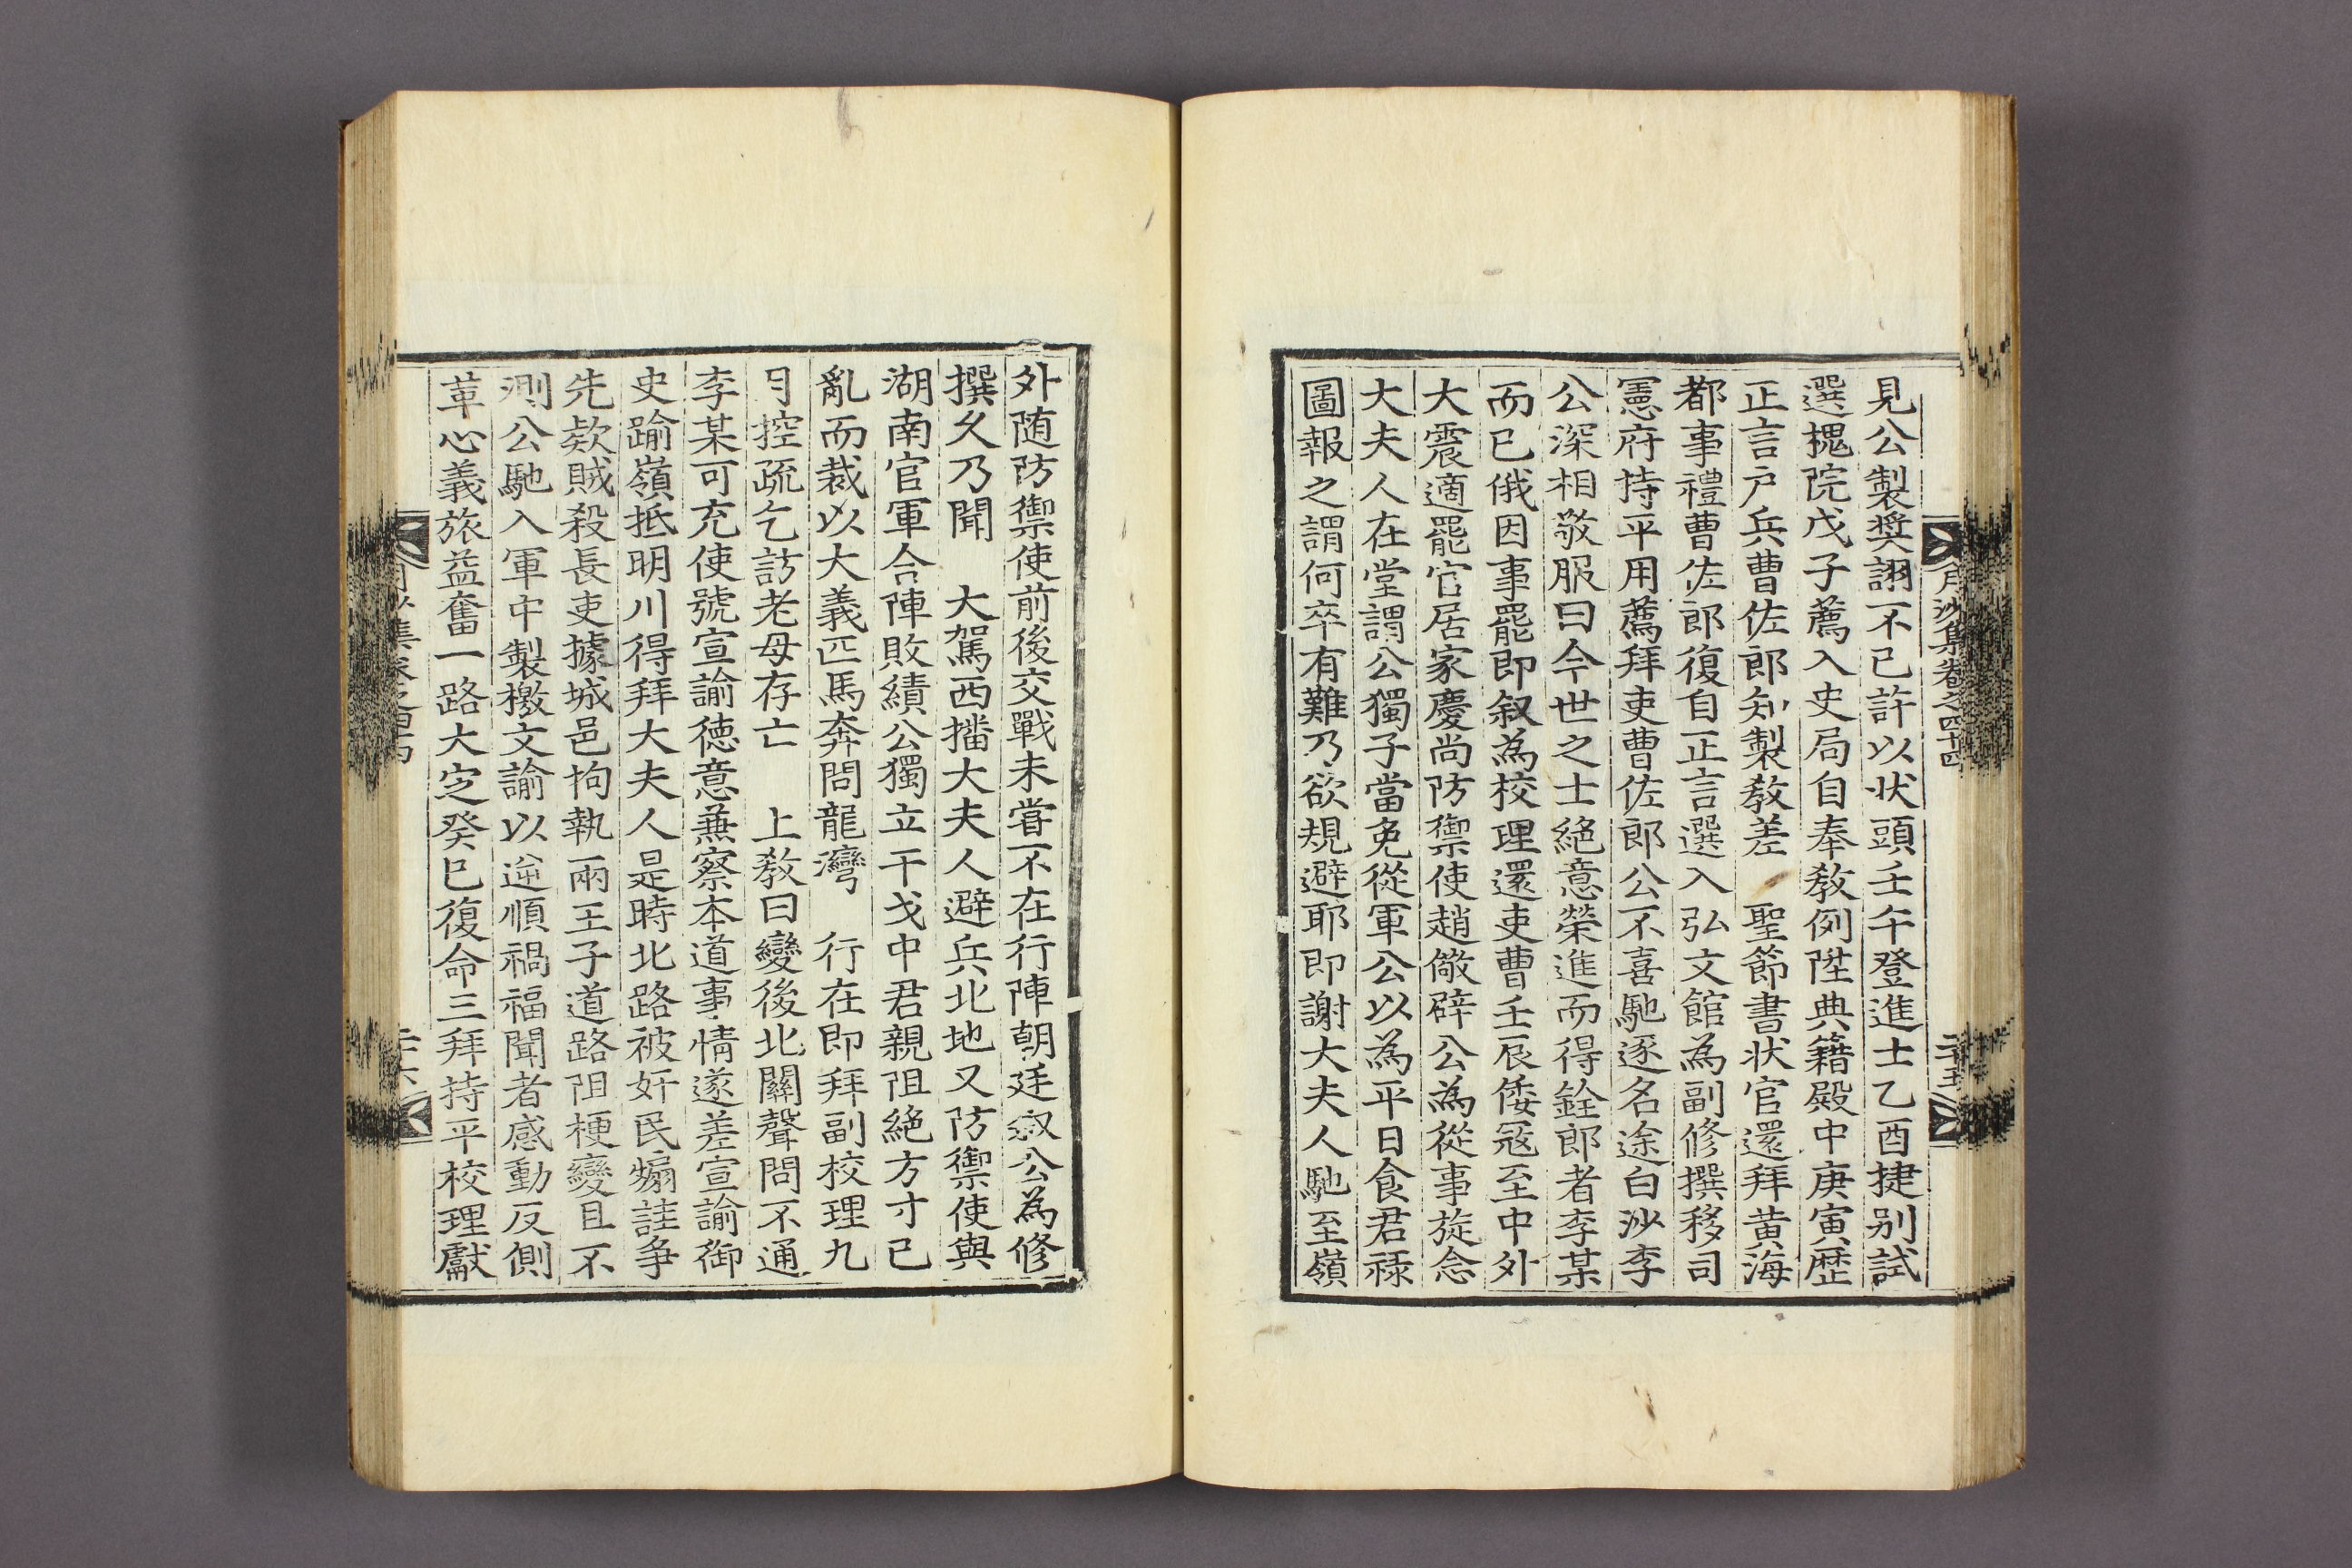 月沙集卷之四十四
二十五
見公製奬詡不已許以状頭壬午登進士乙酉捷别試
選槐院戊子薦入史局自奉教例陞典籍殿中庚寅歴
正言户兵曹佐郎知製教差 聖節書状官還拜黄海
都事禮曹佐郎復自正言選入弘文館為副修撰移司
憲府持平用薦拜吏曹佐郎公不喜馳逐名途白沙李
公深相敬服曰今世之士絕意榮進而得銓郎者李某
而已俄因事罷即叙為校理還吏曹壬辰倭冦至中外
大震適罷官居家慶尚防禦使趙儆辟公為從事旋念
大夫人在堂謂公獨子當免從軍公以為平日食君禄
圖報之謂何卒有難乃欲規避耶即謝大夫人馳至嶺
外随防禦使前後交戰未甞不在行陣朝廷叙公為修
撰久乃聞 大駕西播大夫人避兵北地又防禦使與
湖南官軍合陣敗績公獨立干戈中君親阻絕方寸已
亂而裁以大義匹馬奔問龍灣 行在即拜副校理九
月控疏乞訪老母存亡 上教曰變後北關聲問不通
李某可充使號宣諭德意兼察本道事情遂差宣諭御
史踰嶺抵明川得拜大夫人是時北路被奸民煽詿争
先款賊殺長吏據城邑拘執兩王子道路阻梗變且不
測公馳入軍中製檄文諭以逆順禍福聞者感動反側
革心義旅益奮一路大定癸巳復命三拜持平校理獻